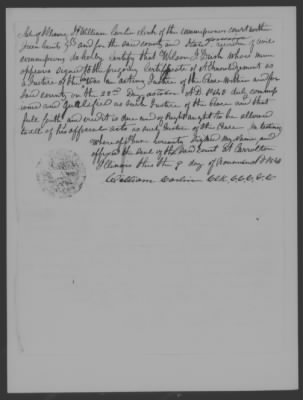 State of Illinois } I William Carlin clerk of the commissioners court within
Green County } and for the said county and State,
do hereby certify that Wilson whose name
appears signed to the foregoing Certificate of Acknowledgement as
a Justice of the was an acting Justice of the Peace within and for
said county on the 22nd day october A.D. 1840 duly commis
sioned and qualified as such Justice of the Peace and that
full faith and credit is due and of Right ought to be allowed
to all of his official acts as such Justice of the Peace. In testimony
whereof I have hereunto my Name and
affixed the Seal of the said court At Carrollton
Illinois this the 9 day of November A.D. 1840
William Carlin Clk. C.C.C.